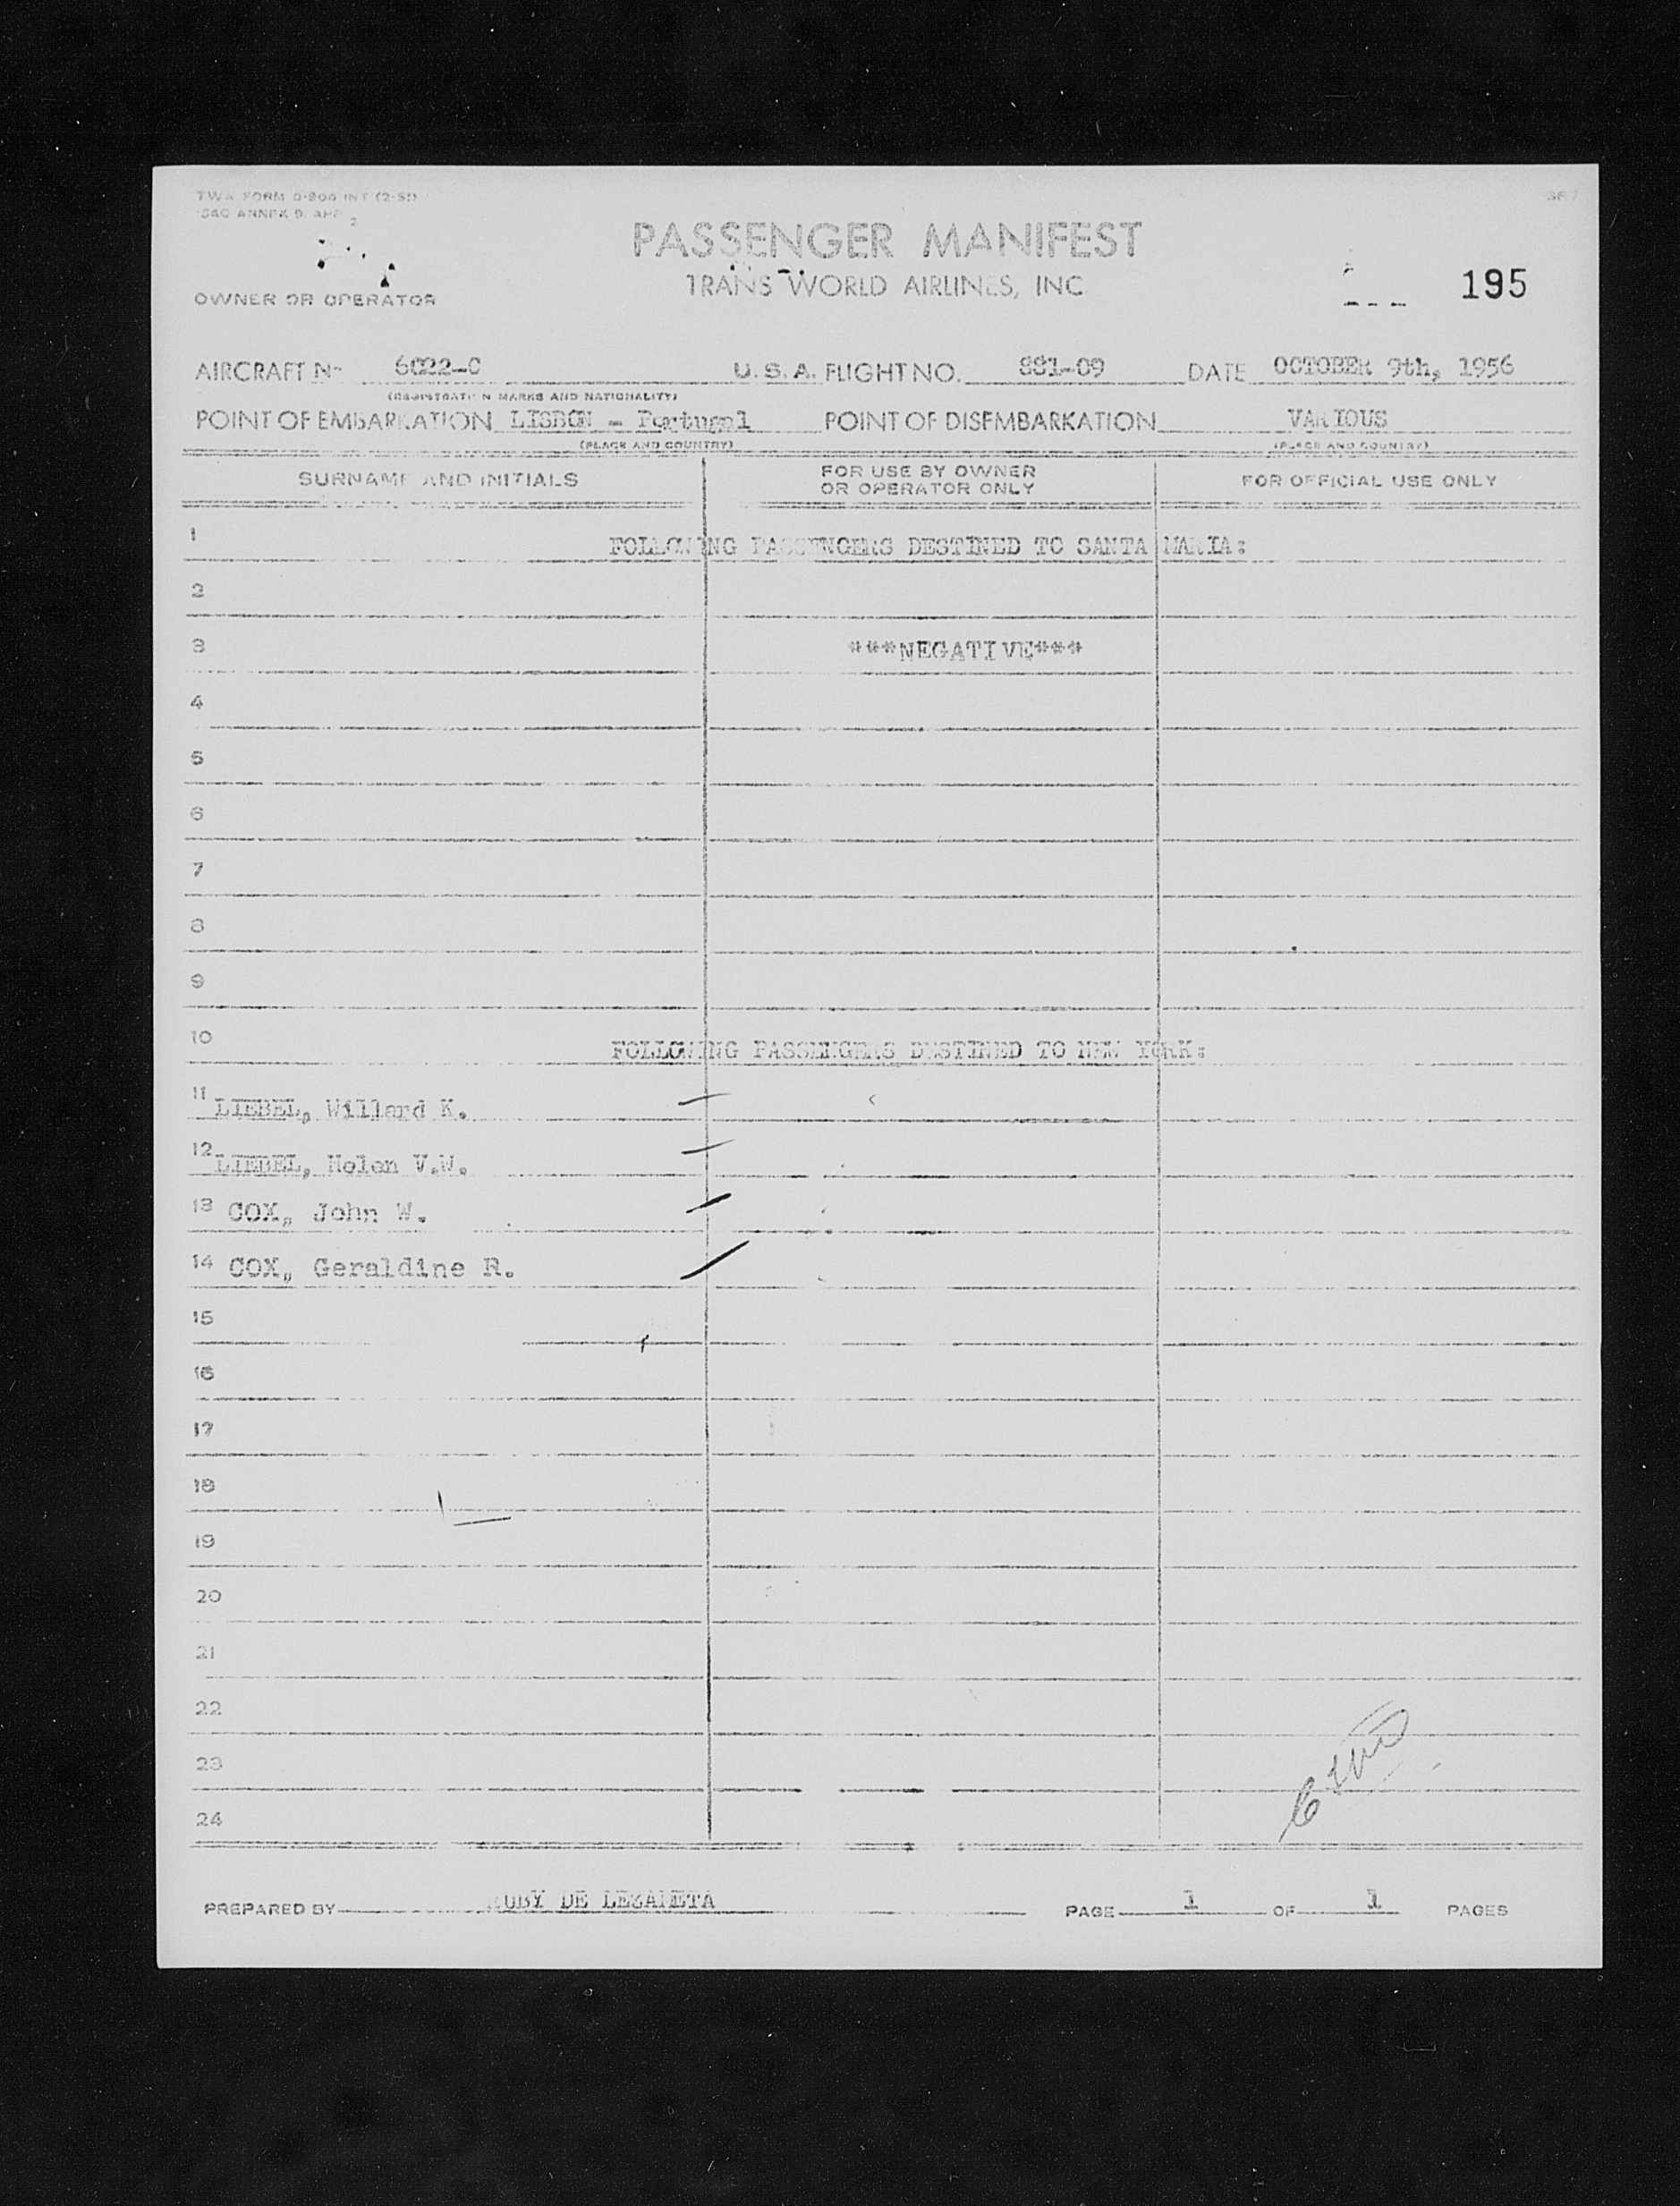 TWA FORM
ICAO ANNEX 9, APP. 2
PASSENGER MANIFEST
TRANS WORLD AIRLINES, INC
195
OWNER OR OPERATOR
AIRCRAFT No 6022-C U.S.A. FLIGHT NO. 881-09 DATE OCTOBER 9th, 1956
(REGISTRATION MARKS AND NATIONALITY)
POINT OF EMBARKATION LISBON - Portugal POINT OF DISEMBARKATION VARIOUS
(PLACE AND COUNTRY) (PLACE AND COUNTRY)
SURNAME AND INITIALS FOR USE BY OWNER OR OPERATOR ONLY FOR OFFICIAL USE ONLY
1 FOLLOWING PASSENGERS DESTINED TO SANTA MARIA:
2
3 ***NEGATIVE***
4
5
6
7
8
9
10 FOLLOWING PASSENGERS DESTINED TO NEW YORK:
11 LIEBEL, Willard K.
12 LIEBEL, Helen V.W.
13 COX, John W.
14 COX, Geraldine R.
15
16
17
18
19
20
21
22
23
24
PREPARED BY RUBY DE LEZAMETA PAGE 1 OF 1 PAGES